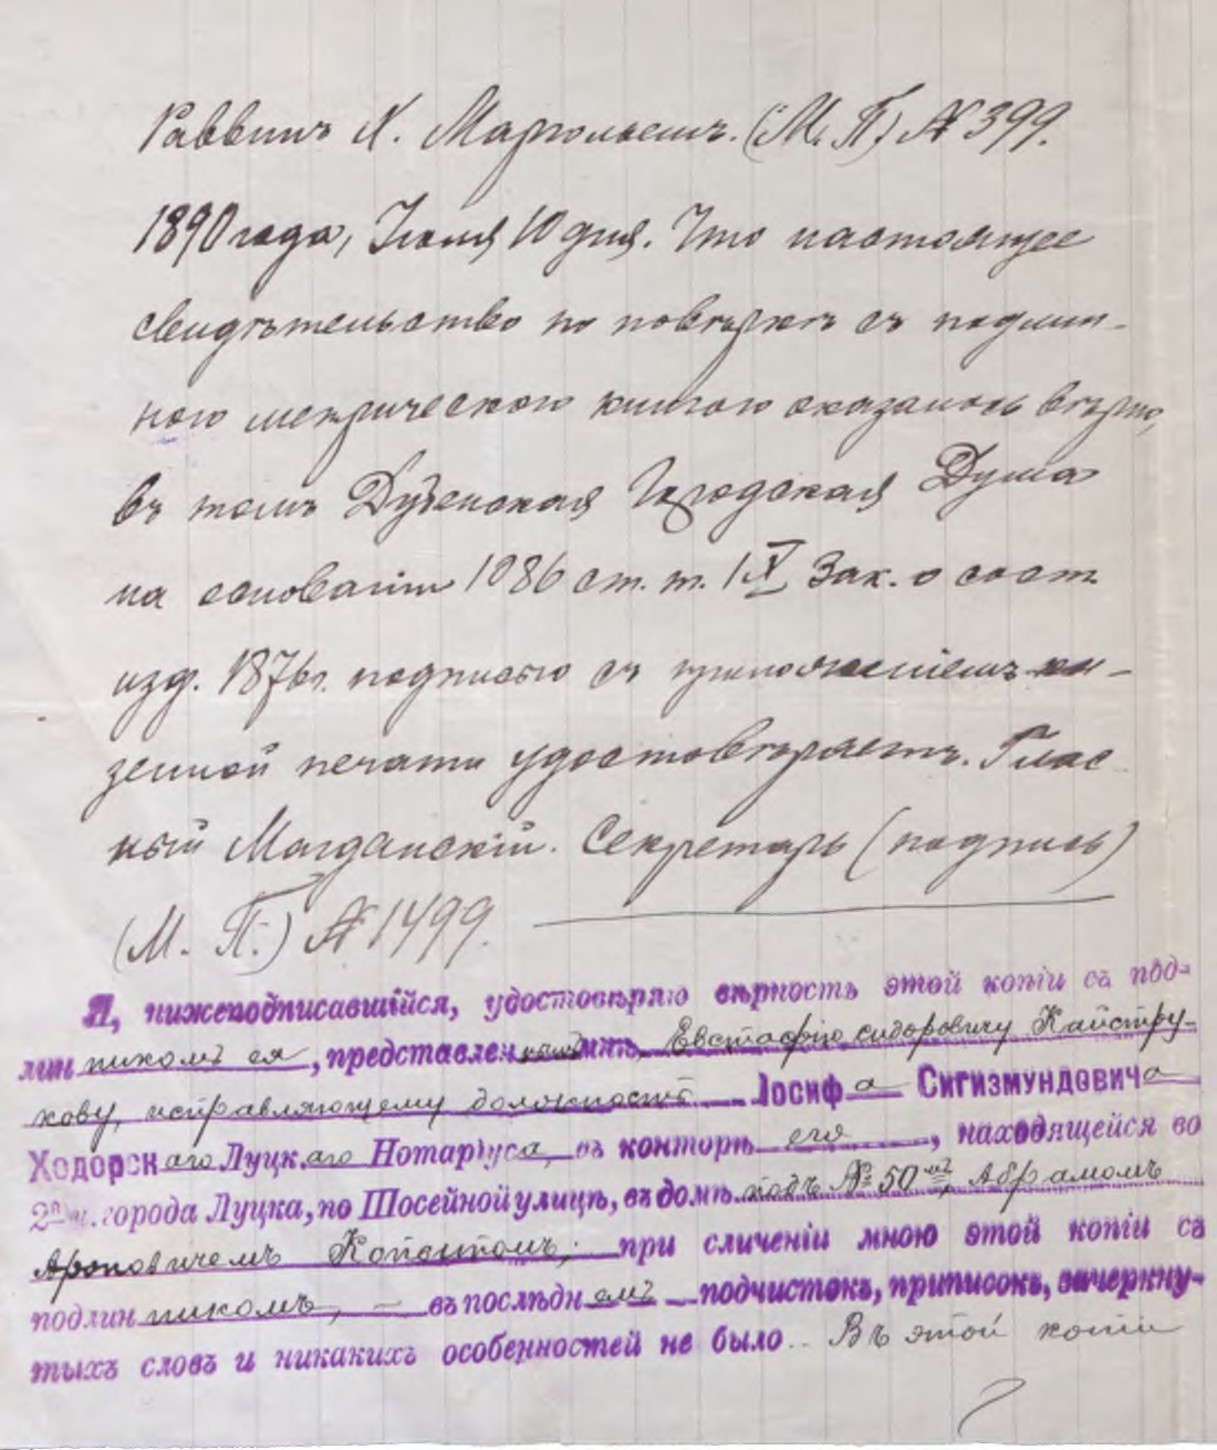 Раввинъ Х. Марголисъ. (М. П.) № 399.
1890 года, Іюля 10 дня. Что настоящее
свидѣтельство по повѣркѣ съ подлин-
ною метрическою книгою оказалось вѣрно,
въ томъ Дубенская Городская Дума
на основаніи 1086 ст. т. IX Зак. о сост.
изд. 1876 г. подписью съ приложеніемъ ка-
зенной печати удостовѣряетъ. Глас
ный Магданскій. Секретарь (подпись)
(М. П.) № 1499.
Я, нижеподписавшійся, удостовѣряю вѣрность этой копіи съ под-
линникомъ ея, представленнымъ мнѣ, Евстафію Сидоровичу Кайстру-
кову, исправляющему должность Іосифа Сигизмундовича
Ходорскаго Луцкаго Нотаріуса, въ конторѣ его, находящейся во
2й ч. города Луцка, по Шосейной улицѣ, въ домѣ подъ № 50мъ, Абрамомъ
Ароновичемъ; при сличеніи мною этой копіи съ
подлинникомъ, — въ послѣднемъ подчистокъ, приписокъ, зачеркну-
тыхъ словъ и никакихъ особенностей не было. Въ этой копіи